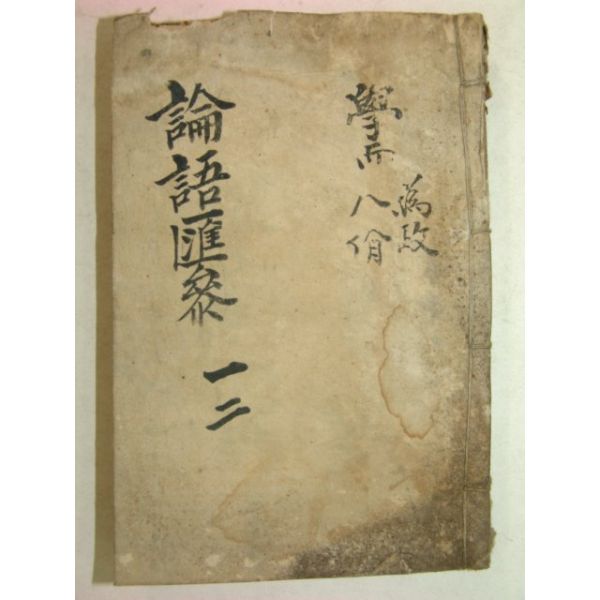 論語匯參
一二
學而
為政
八佾